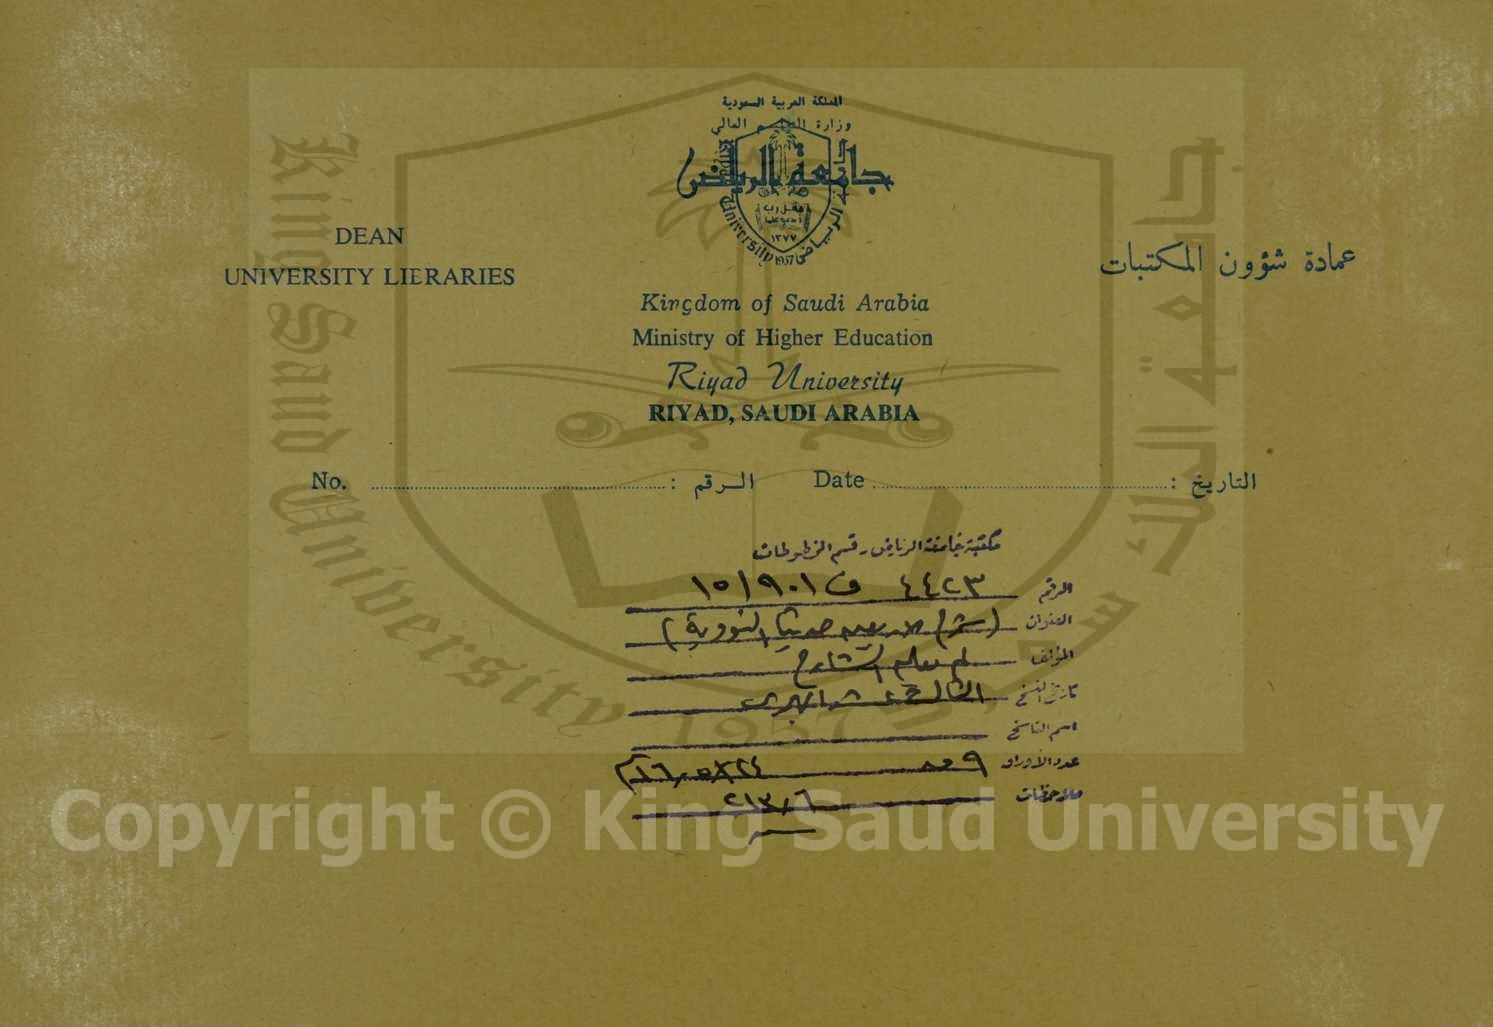 المملكة العربية السعودية
وزارة التعليم العالي
جامعة الرياض
١٣٧٧
University 1957 الرياض
DEAN
UNIVERSITY LIBRARIES
عمادة شؤون المكتبات
Kingdom of Saudi Arabia
Ministry of Higher Education
Riyad University
RIYAD, SAUDI ARABIA
No. : الرقم
Date : التاريخ
مكتبة جامعة الرياض - قسم المخطوطات
الرقم ٤٤٢٣ ف ١٥/٩٠١
العنوان (شرح الأربعين حديثا النووية)
المؤلف لم يعلم الشارح
تاريخ النسخ الثالث عشر الهجري
اسم الناسخ
عدد الأوراق
ملاحظات ٢١٣٫٦
King Saud University
جامعة الملك سعود
1957
Copyright © King Saud University